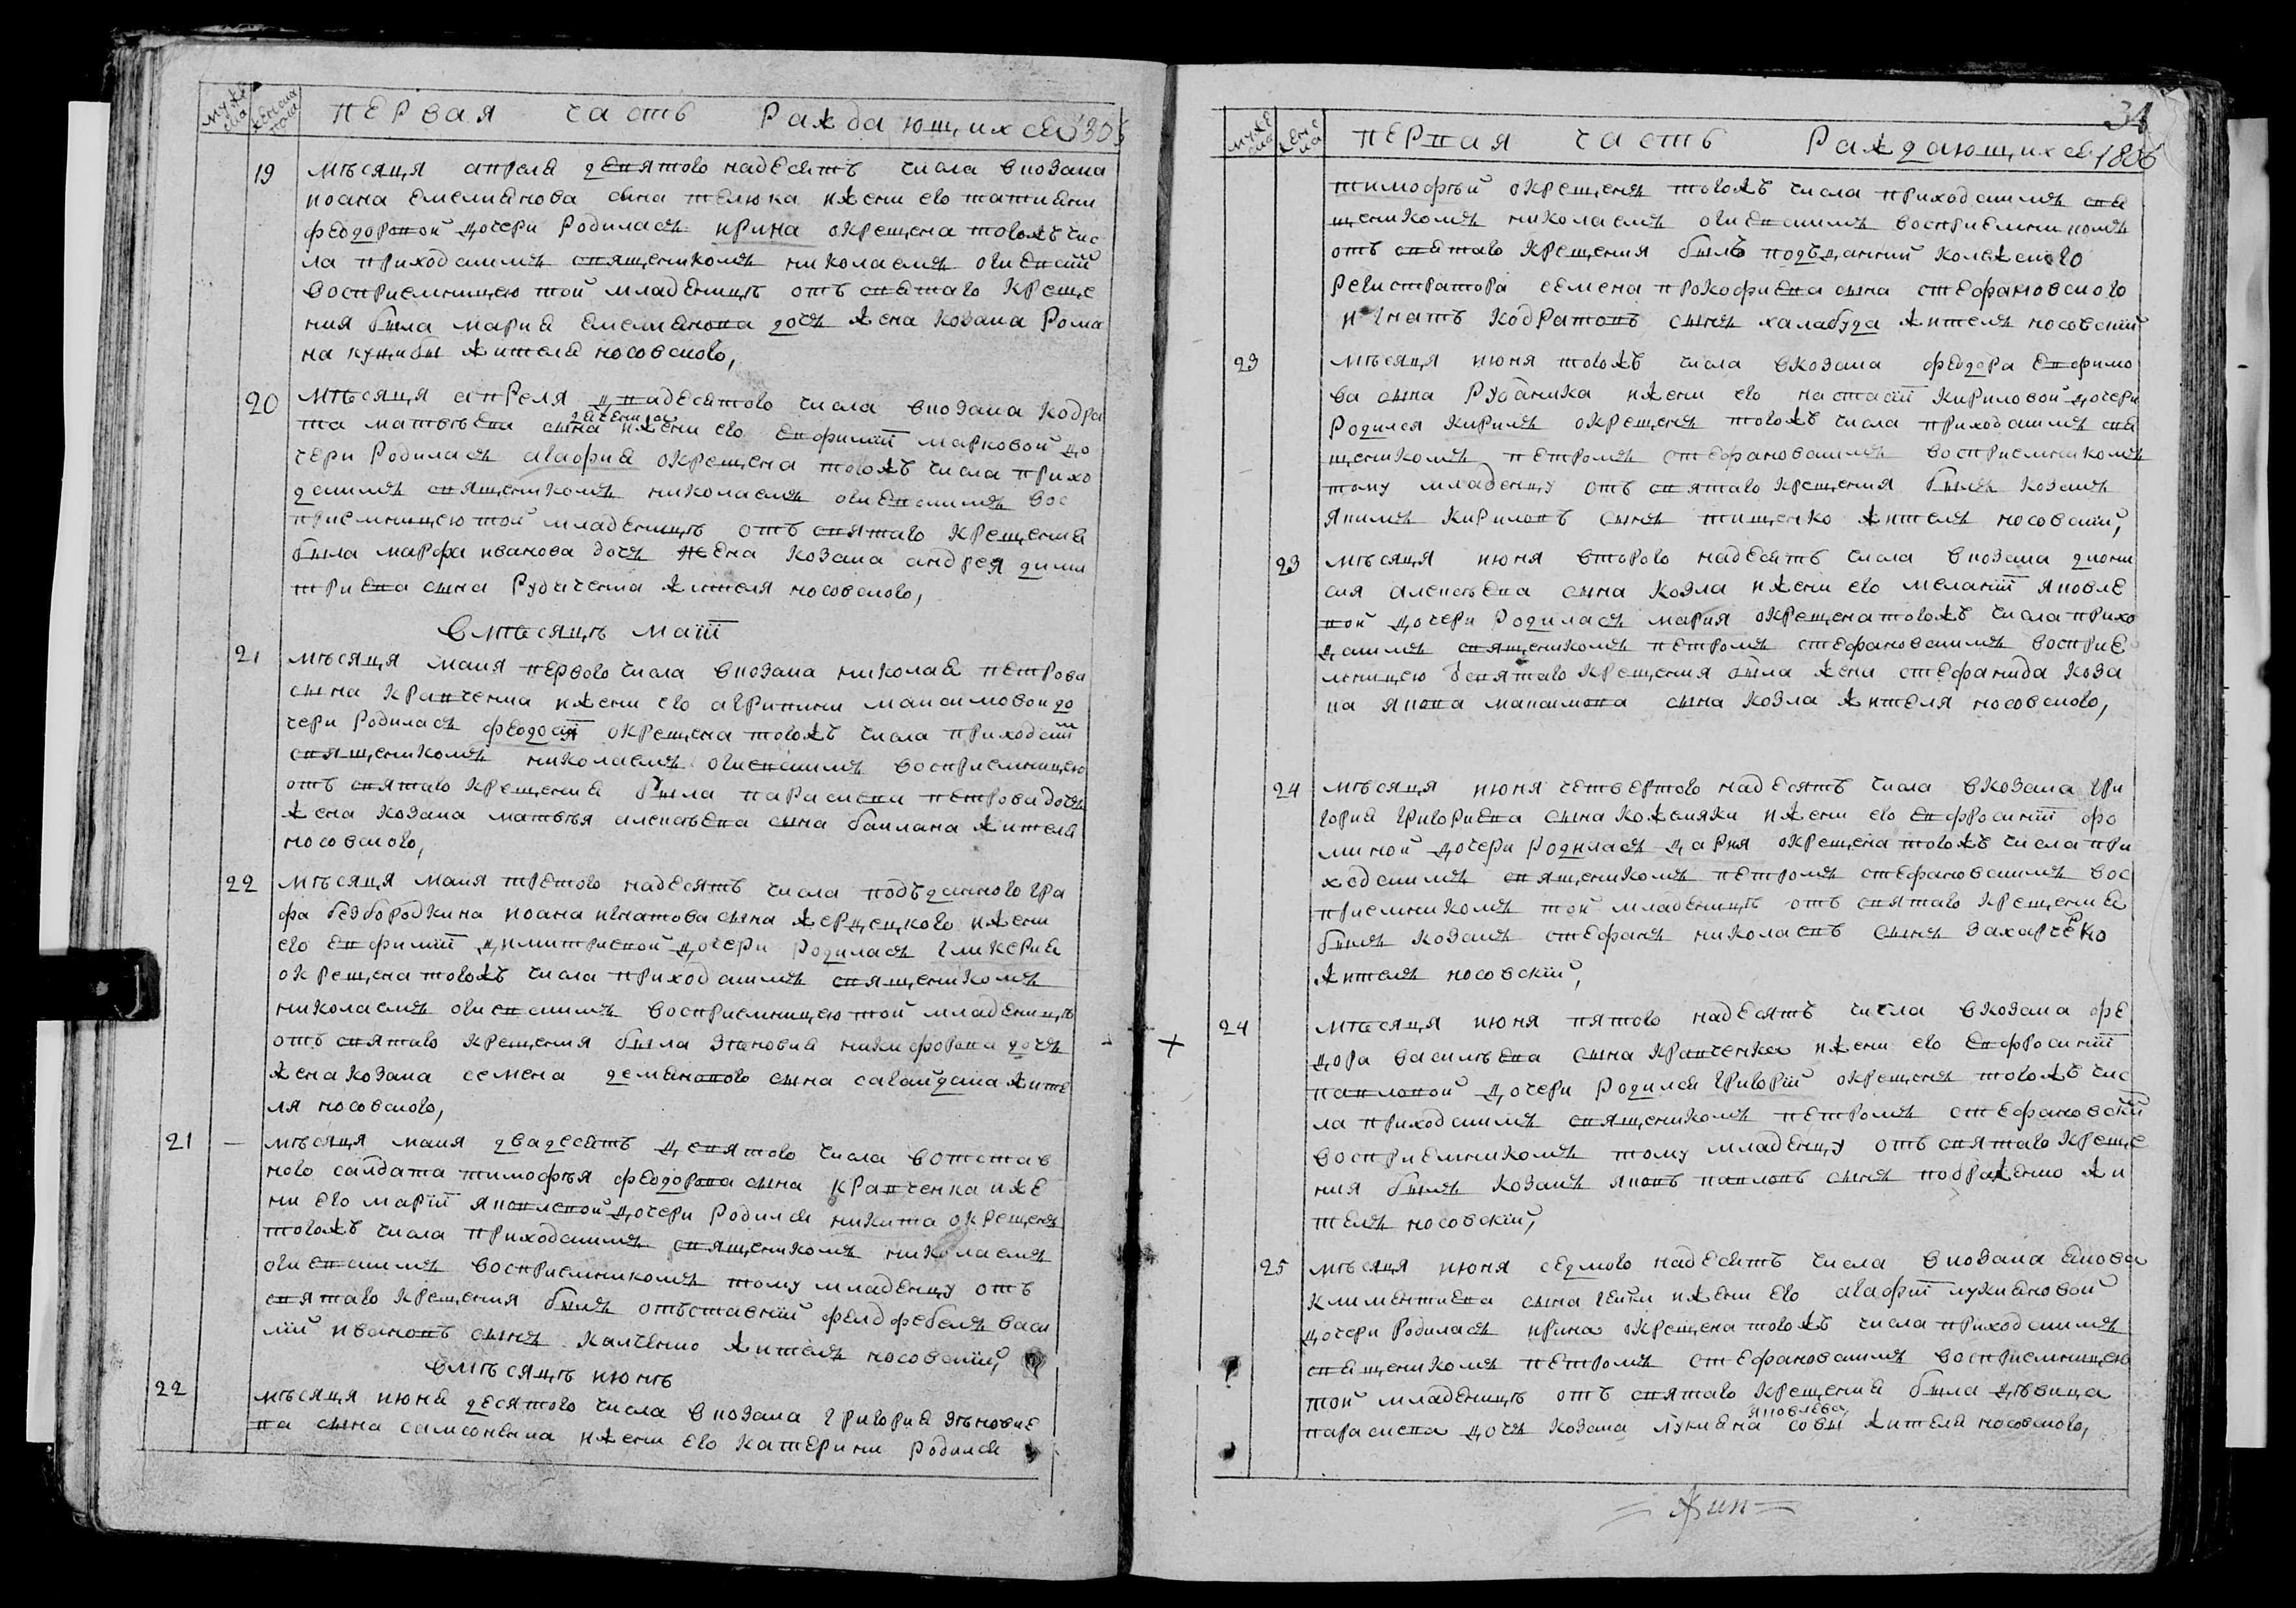 мужеска женска пола первая часть Раждающихся 1806
19 мѣсяця апреля девятого надесять числа вкозака
иоана емелиянова сина телюка ижени его татияни
феодоровой дочери Родилась ирина окрещена тогожъ чис
ла приходскимъ священикомъ николаемъ огиевскій
восприемницею той младеницѣ отъ святаго креще
ния была мария емелиянова дочь жена козака Рома
на куциби жителя носовского,
20 мѣсяця апреля двадесятого числа вкозака кодра
та матвѣева сина дяченка ижени его евфиміи марковой до
чери Родилась агафия окрещена тогожъ числа прихо
дскимъ священикомъ николаемъ огиевскимъ вос
приемницею той младеницѣ отъ святаго крещения
была марфа иванова дочь жена козака андрея дими
триева сина Рудиченка жителя носовского,
вмѣсяцѣ маіи
21 мѣсяця маия первого числа вкозака николая петрова
сина кравченка ижени его агрипини максимовои до
чери Родилась феодосія окрещена тогожъ числа приходскій
священикомъ николаемъ огиевскимъ восприемницею
отъ святаго крещения была параскева петрова дочь
жена козака матвѣя алексѣева сина баклана жителя
носовского,
22 мѣсяця маия третого надесять числа подъданного гра
фа безбородкина иоана игнатова сина жердецкого ижени
его евфиміи димитриевой дочери Родилась гликерия
окрещена тогожъ числа приходскимъ священикомъ
николаемъ огиевскимъ восприемницею той младеницѣ
отъ святаго крещения была зѣновия никифорова дочь
жена козака семена демянового сина сагайдака жите
ля носовского,
21 мѣсяця маия двадесять девятого числа вотстав
ного салдата тимофѣя феодорова сина кравченка иже
ни его маріи яковлевой дочери Родился никита окрещенъ
тогожъ числа приходскимъ священикомъ николаемъ
огиевскимъ восприемникомъ тому младенцу отъ
святаго крещения былъ отъставній фелдфебель васи
лій ивановъ синъ калченко житель носовскій,
вмѣсяцѣ июнѣ
22 мѣсяця июня десятого числа вкозака григория зѣновие
ва сина самсоненка ижени его катерини Родился
34
мужеска женска первая часть Раждающихся 1806
тимофѣй окрещенъ тогожъ числа приходскимъ свя
щеникомъ николаемъ огиевскимъ восприемникомъ
отъ святаго крещения былъ подъданний колежского
регистратора семена прокофиева сина стефановского
игнатъ кодратовъ синъ халабуда житель носовскій
23 мѣсяця июня тогожъ числа вкозака феодора евфимо
ва сина Рубаника ижени его настасіи кириловой дочери
Родился кирилъ окрещенъ тогожъ числа приходскимъ свя
щеникомъ петромъ стефановскимъ восприемникомъ
тому младенцу отъ святаго крещения былъ козакъ
якимъ кириловъ синъ тищенко житель носовскій,
23 мѣсяця июня второго надесять числа вкозака диони
сия алексѣева сина козла ижени его меланіи яковле
вой дочери Родилась мария окрещена тогожъ числа прихо
дскимъ священикомъ петромъ стефановскимъ восприе
мницею всвятаго крещения была жена стефанида коза
ка якова максимова сина козла жителя носовского,
24 мѣсяця июня четвертого надесять числа вкозака гри
гория григориева сина кожемяки ижени его евфросиніи фо
миной дочери Родилась дария окрещена тогожъ числа при
ходскимъ священикомъ петромъ стефановскимъ вос
приемникомъ той младеницѣ отъ святаго крещения
былъ козакъ стефанъ николаевъ синъ захарченко
житель носовскій,
24 мѣсяця июня пятого надесять числа вкозака фе
дора василѣева сина кравченка ижени его евфросиніи
павловой дочери Родился григорій окрещенъ тогожъ чис
ла приходскимъ священикомъ петромъ стефановскій
восприемникомъ тому младенцу отъ святаго креще
ния былъ козакъ яковъ павловъ синъ жи
тель носовскій,
25 мѣсяця июня седмого надесять числа вкозака якова
климентиева сина гейки ижени его агафіи лукияновой
дочери Родилась ирина окрещена тогожъ числа приходскимъ
священикомъ петромъ стефановскимъ восприемницею
той младеницѣ отъ святаго крещения была дѣвица
параскева дочь козака лукияна яковлева совы жителя носовского,